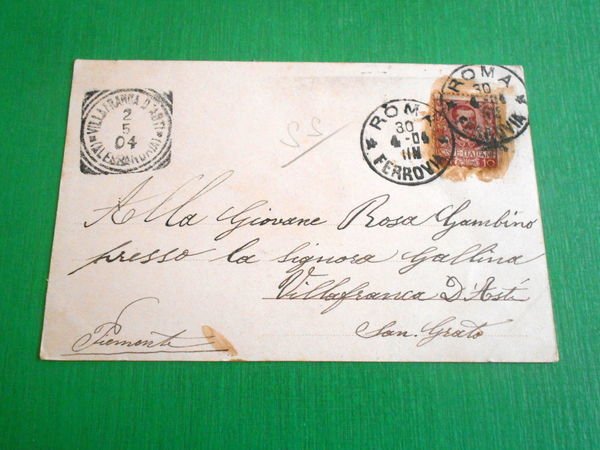 VILLAFRANCA D'ASTI
2
5
04
(ALESSANDRIA)
22
ROMA
30
4-04
11M
FERROVIA
ROMA
30
4-04
10
Alla Giovane Rosa Gambino
presso la signora Gallina
Villafranca D'Asti
San. Grato
Piemonte